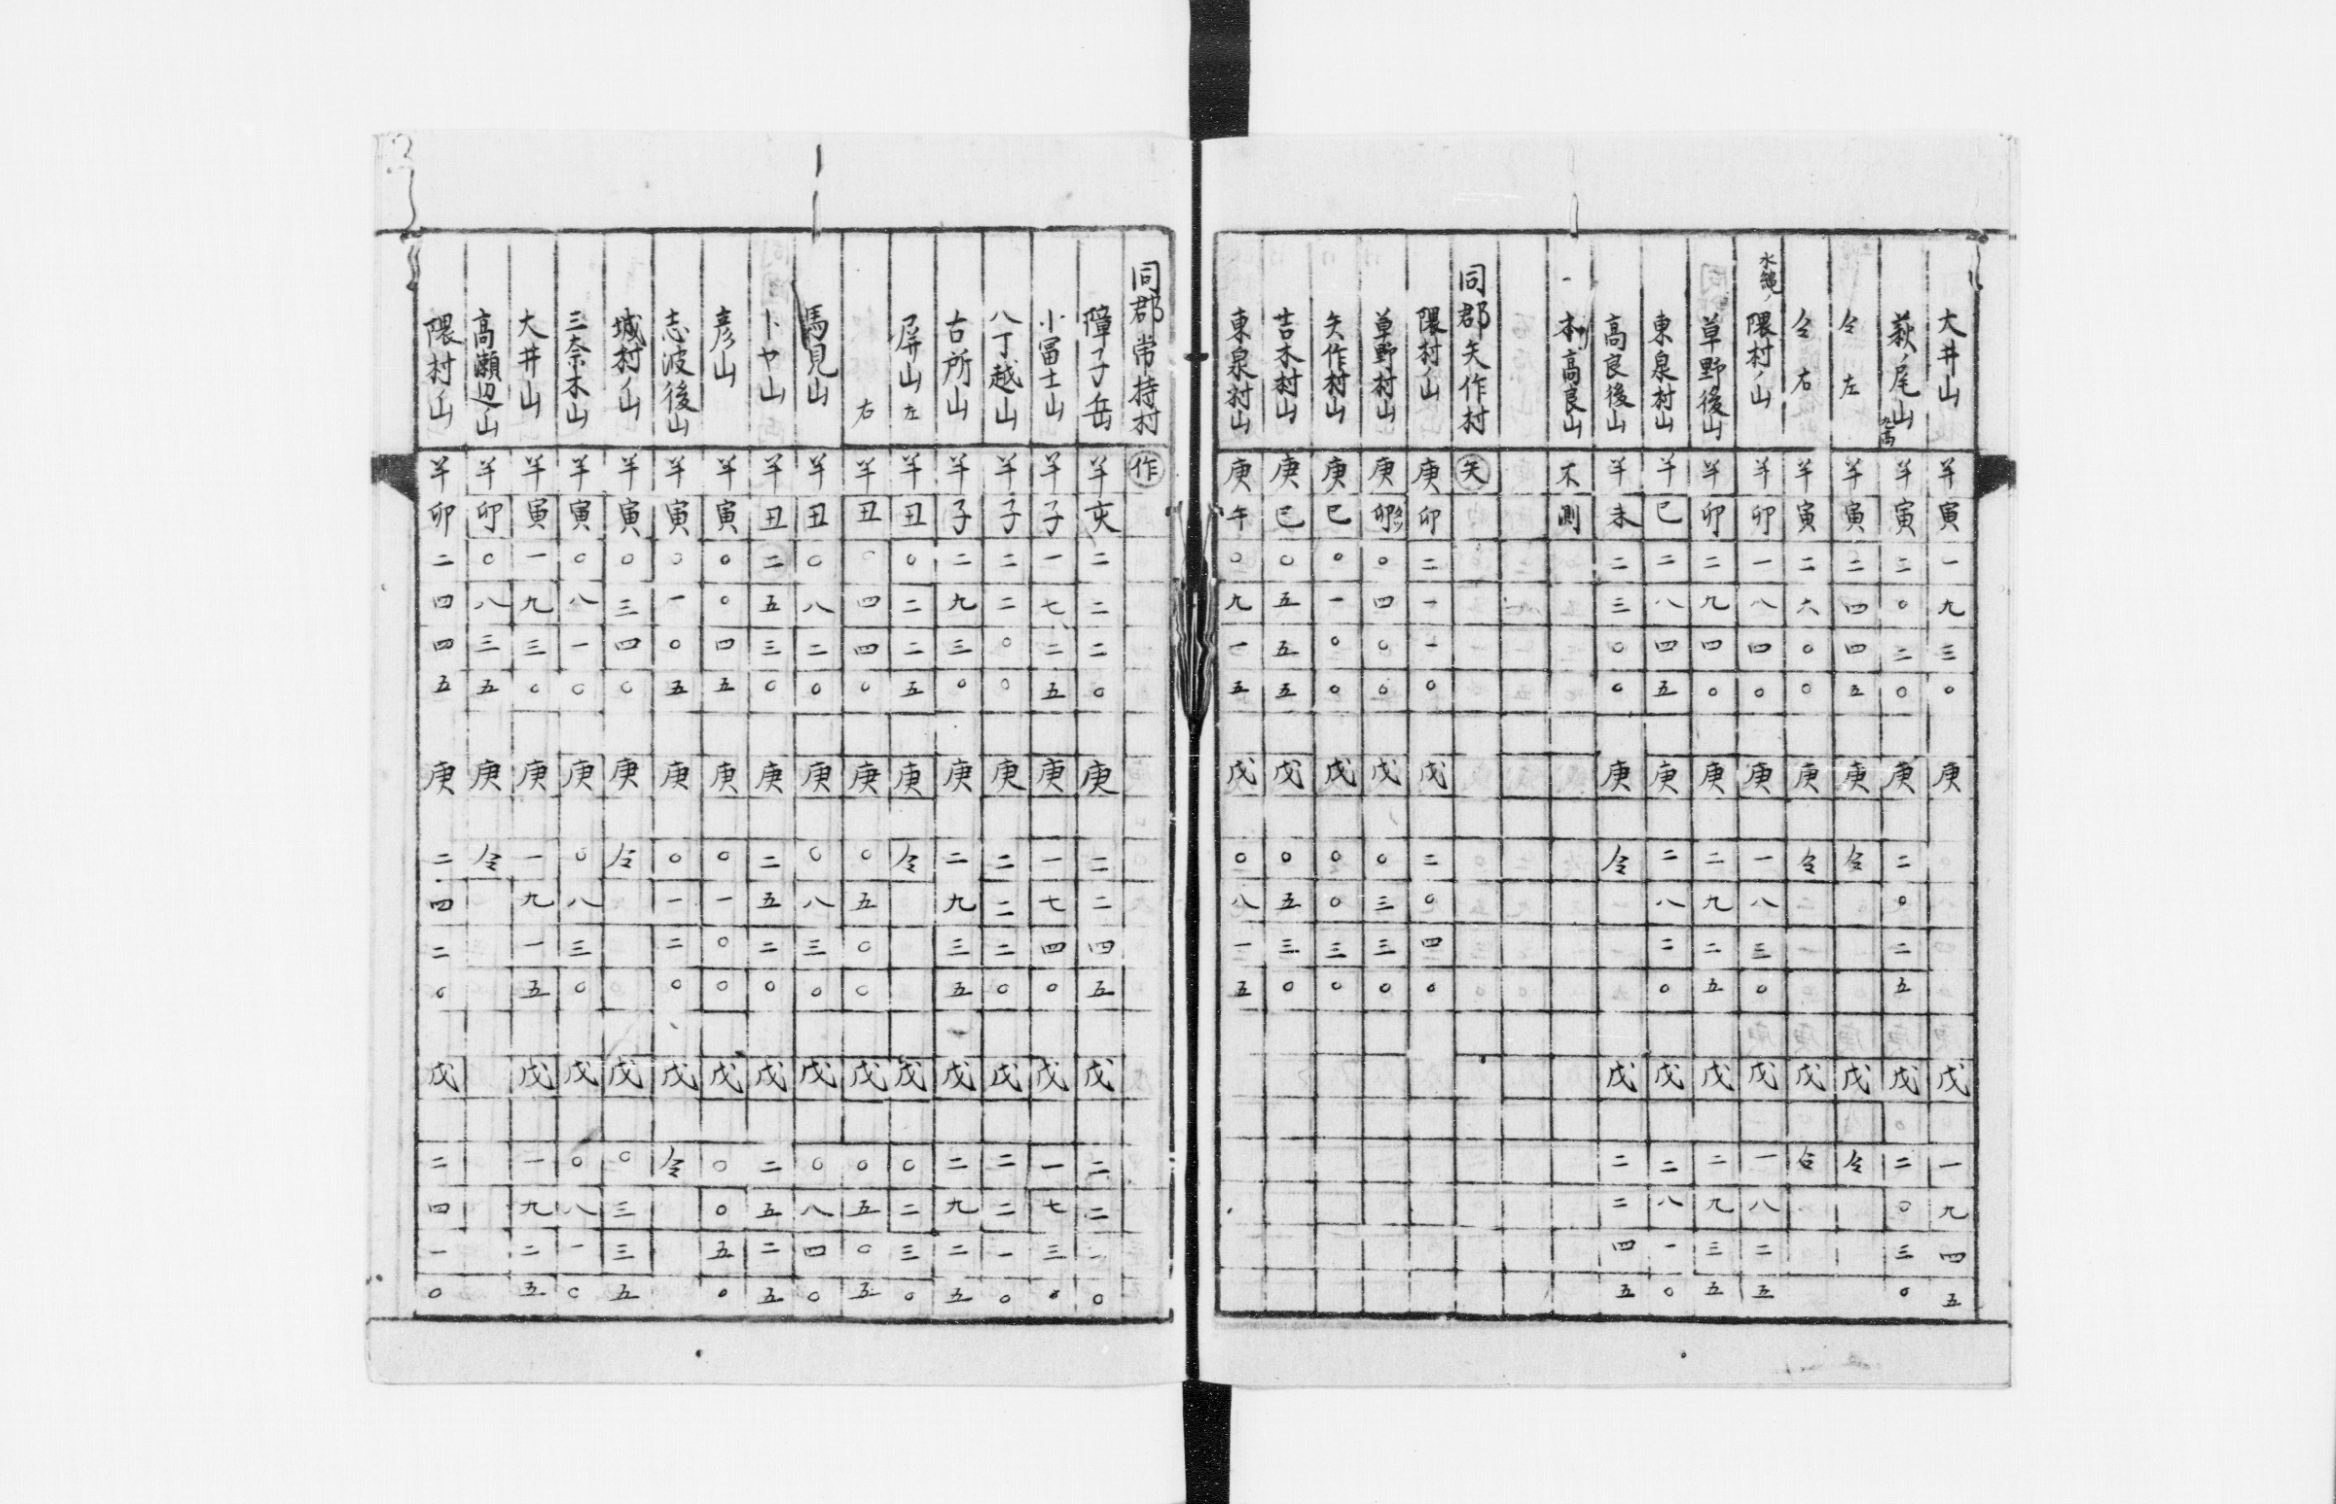 大井山 羊寅一九三〇 庚 戊 一九四五
萩ノ尾山 羊寅二〇二〇 庚 二〇二五 戊 二〇三〇
仝 左 羊寅二四四五 庚 仝 戊 仝
仝 右 羊寅二六〇〇 庚 仝 戊 仝
水縄ノ隈村ノ山 羊卯一八四〇 庚 一八三〇 戊 一八二五
草野後山 羊卯二九四〇 庚 二九二五 戊 二九三五
東泉村山 羊巳二八四五 庚 二八二〇 戊 二八一〇
高良後山 羊未二三〇〇 庚 仝 戊 二二四五
一本 高良山 不測
同郡矢作村 矢
隈村ノ山 庚卯二一一〇 戊 二〇四〇
草野村山 庚卯〇四〇〇 戊 〇三三〇
矢作村山 庚巳〇一〇〇 戊 〇〇三〇
吉木村山 庚巳〇五五五 戊 〇五三〇
東泉村山 庚午〇九一五 戊 〇八一五
同郡常持村 作
障子岳 羊亥二二二〇 庚 二二四五 戊 二二一〇
小冨士山 羊子一七二五 庚 一七四〇 戊 一七三〇
八丁越山 羊子二二〇〇 庚 二二二〇 戊 二二一〇
古所山 羊子二九三〇 庚 二九三五 戊 二九二五
屏山 左 羊丑〇二二五 庚 仝 戊 〇二三〇
右 羊丑〇四四〇 庚 〇五〇〇 戊 〇五〇五
馬見山 羊丑〇八二〇 庚 〇八三〇 戊 〇八四〇
トヤ山 羊丑二五三〇 庚 二五二〇 戊 二五二五
彦山 羊寅〇〇四五 庚 〇一〇〇 戊 〇〇五〇
志波後山 羊寅〇一〇五 庚 〇一二〇 戊 仝
城村ノ山 羊寅〇三四〇 庚 仝 戊 〇三三五
三奈木山 羊寅〇八一〇 庚 〇八三〇 戊 〇八一〇
大井山 羊寅一九三〇 庚 一九一五 戊 一九二五
高瀬辺ノ山 羊卯〇八三五 庚 仝
隈村ノ山 羊卯二四四五 庚 二四二〇 戊 二四一〇